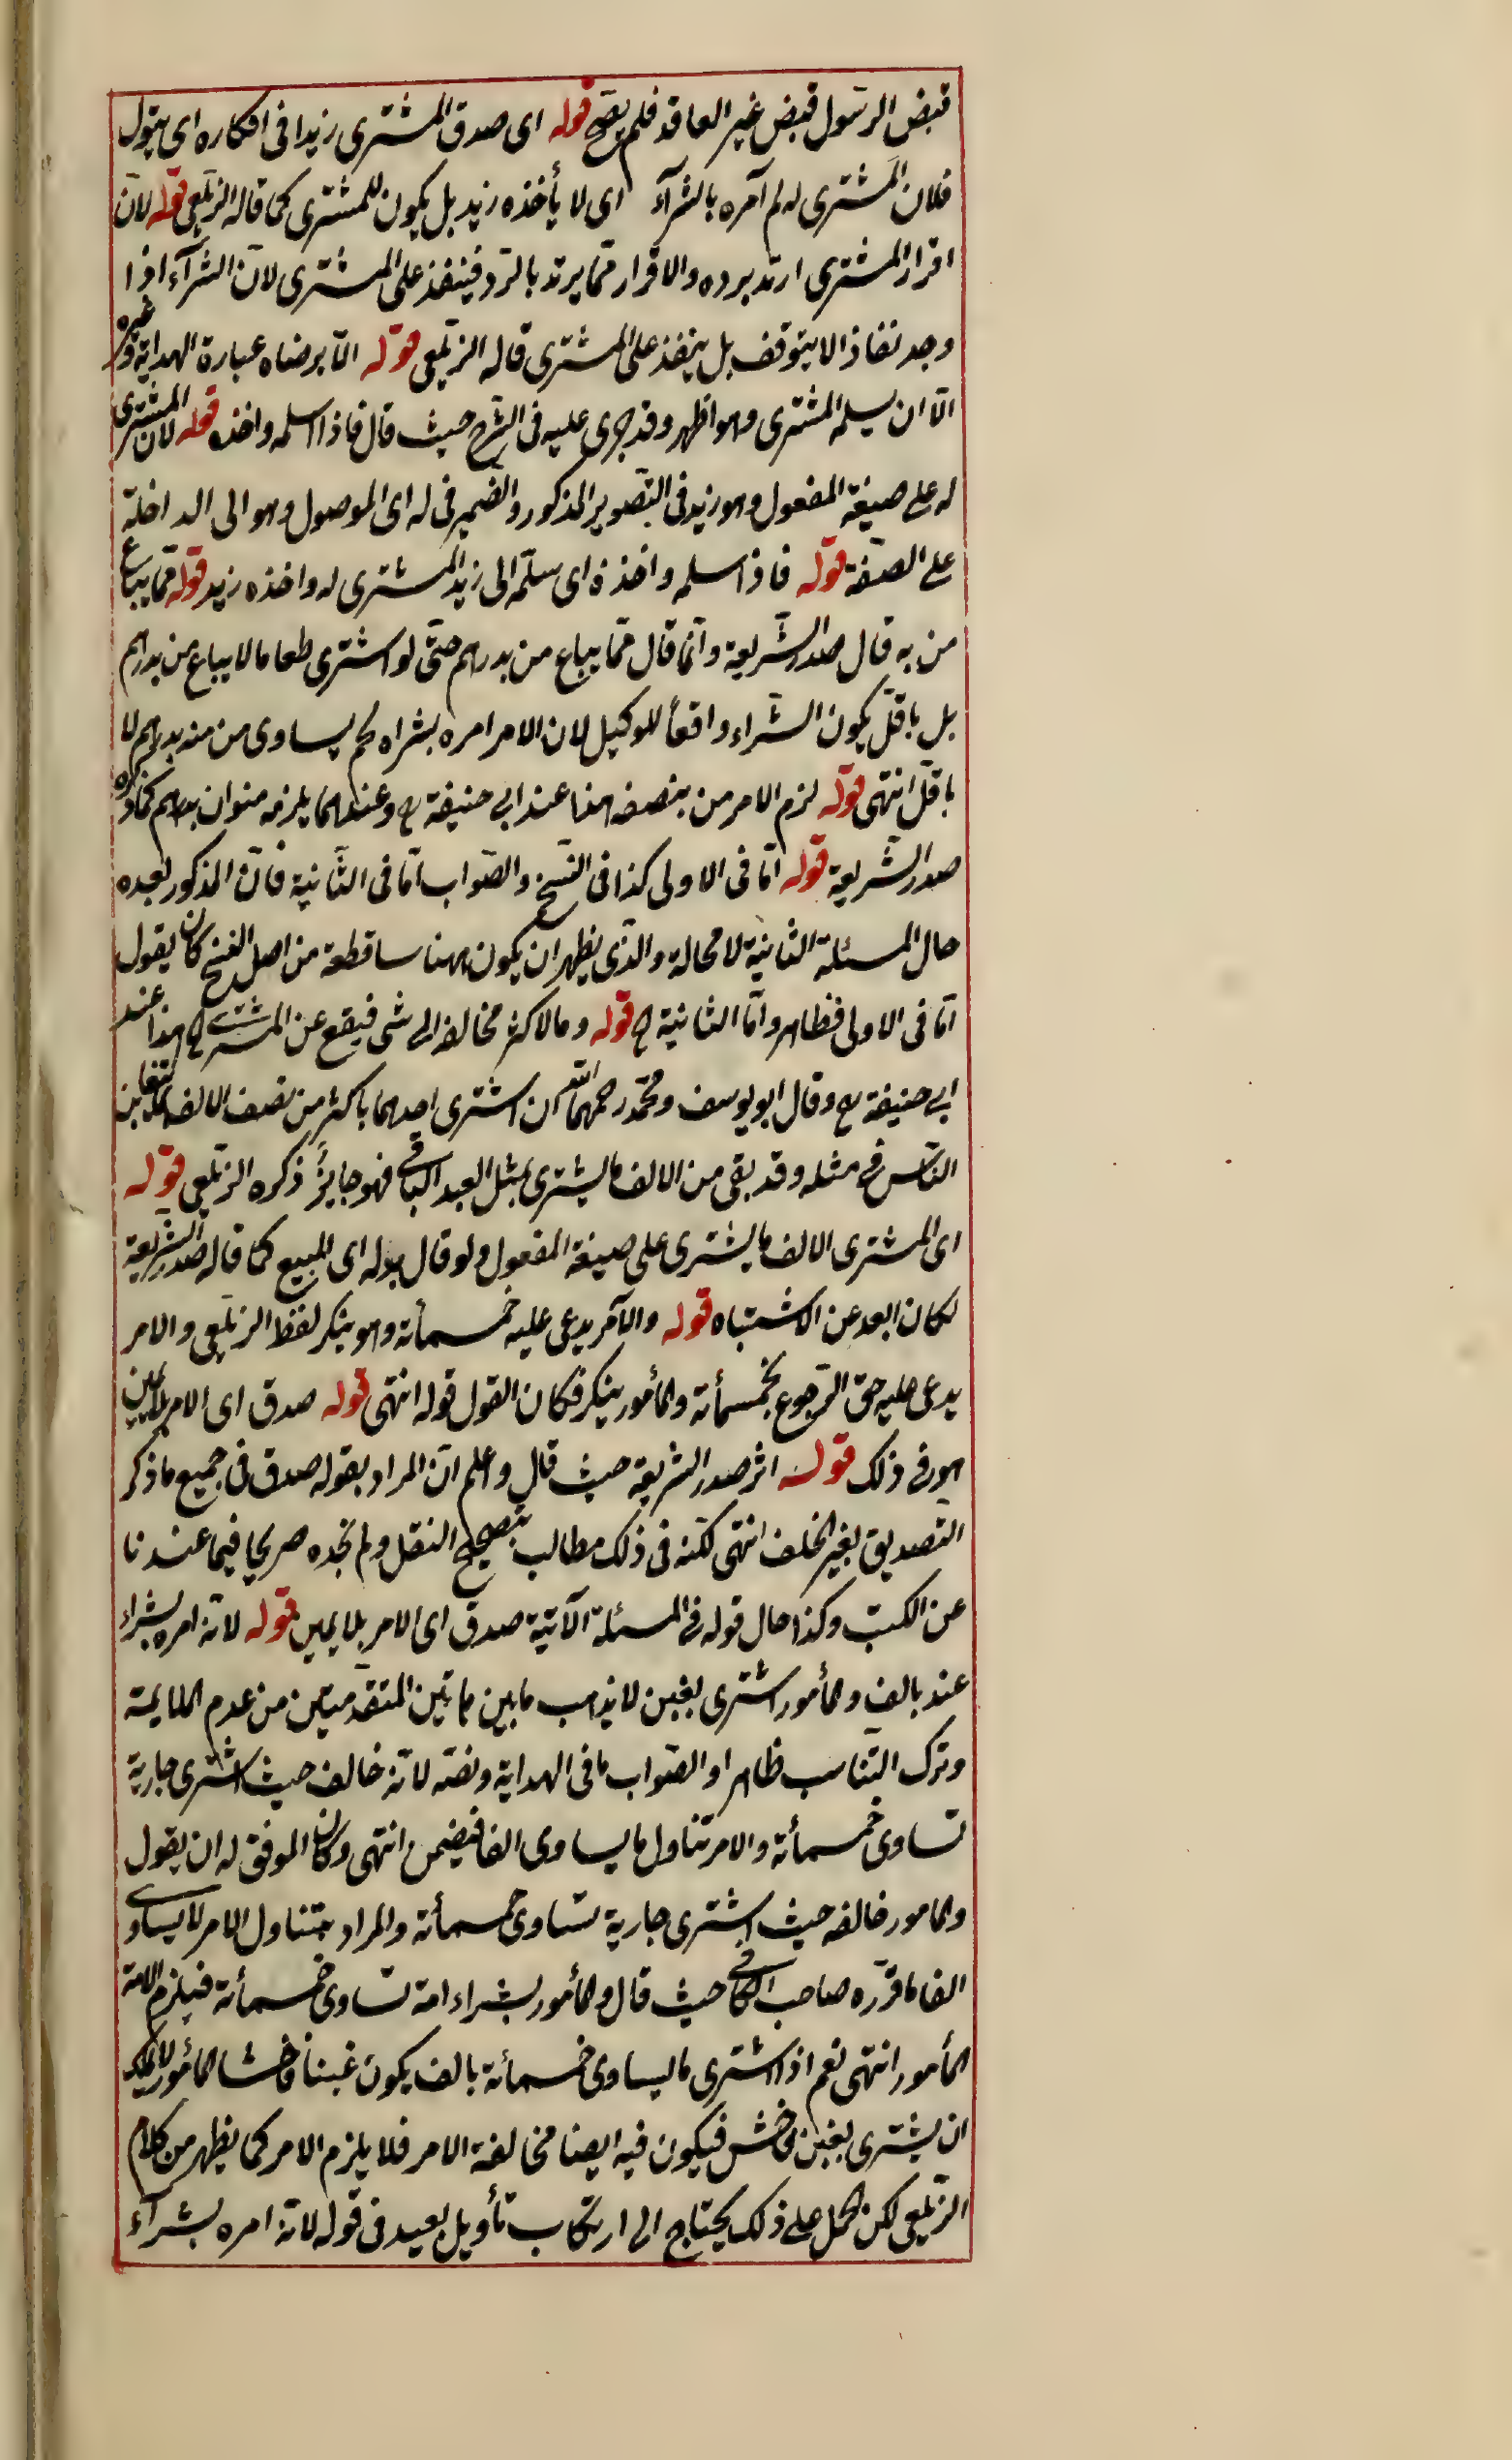 قبض الرسول قبض غير العاقد فلم يصح قوله اى صدق المشترى زيدا فى انكاره اى يقول
فلان المشترى له لم آمره بالشرآء اى لا يأخذه زيد بل يكون للمشترى كما قاله الزيلعى قوله لان
اقرار المشترى ارتد برده والاقرار مما يرتد بالرد فينفذ على المشترى لان الشرآء اذا
وجد نفاذ الا يتوقف بل ينفذ على المشترى قاله الزيلعى قوله الا برضاه عبارة الهداية وغيره
الا ان يسلمه المشترى وهو اظهر وقد جرى عليه فى الشرح حيث قال فاذا سلمه واخذه قوله لان المشترى
له على صيغة المفعول وهو زيد فى التصوير المذكور والضمير فى له اى الموصول وهو الى الداخلة
على الصفة قوله فاذا سلمه واخذه اى سلمه الى زيد المشترى له واخذه زيد قوله مما يباع
من به قال صدر الشريعة وانما قال مما يباع من بدرهم حتى لو اشترى طعاما لا يباع من بدرهم
بل باقل يكون الشراء واقعا للوكيل لان الامر امره بشراء لحم يساوى من منه بدرهم لا
باقل انتهى قوله لزم الامر من بنصفه هذا عند ابى حنيفة رح وعندهما يلزمه منوان بدرهم كما ذكره
صدر الشريعة قوله اما فى الاولى كذا فى النسخ والصواب اما فى الثانية فان المذكور بعده
حال المسئلة الثانية لا محالة والذى يظهر ان يكون ههنا ساقطة من اصل النسخ كان يقول
اما فى الاولى فظاهر واما الثانية الخ قوله ومالاكثر مخالفة الى شى فيقع عن المشترى هذا عند
ابى حنيفة رح وقال ابو يوسف ومحمد رحمهما الله ان اشترى احدهما باكثر من نصف الالف بما يتغابن
الناس فى مثله وقد بقى من الالف ما يشترى بمثل العبد الباقى فهو جايز ذكره الزيلعى قوله
اى المشترى الالف ما يشترى على صيغة المفعول ولو قال بوله اى المبيع كما قاله صدر الشريعة
لكان ابعد عن الاشتباه قوله والآمر يدعى عليه خمسمأئة وهو ينكر لفظ الزيلعى والامر
يدعى عليه حق الرجوع بخمسمأئة والمأمور ينكر فكان القول قوله انتهى قوله صدق اى الامر بلا يمين
هو فى ذلك قوله اثر صدر الشريعة حيث قال واعلم ان المراد بقوله صدق فى جميع ما ذكر
التصديق بغير الحلف انتهى لكنه فى ذلك مطالب بتصحيح النقل ولم نجده صريحا فيما عندنا
عن الكتب وكذا حال قوله فى المسئلة الآتية صدق اى الامر بلا يمين قوله لانه امره بشراء
عند بالف والمأمور اشترى بغبن لا يذهب ما بين هاتين المتقدمتين من عدم الملايمة
وترك التناسب ظاهرا والصواب ما فى الهداية ونصه لانه خالف حيث اشترى جارية
تساوى خمسمأئة والامر تناول ما يساوى الفا فيضمن انتهى وكان الموفق له ان يقول
والمامور خالفه حيث اشترى جارية تساوى خمسمأئة والمراد بتناول الامر لا يساوى
الفا ما قرره صاحب الكافى حيث قال والمأمور بشراء امة تساوى خمسمأئة فيلزم الامة
المأمور انتهى نعم اذا اشترى ما يساوى خمسمأئة بالف يكون غبنا فاحشا المأمور لا يملك
ان يشترى بغبن فاحش فيكون فيه ايضا مخالفة الامر فلا يلزم الامر كما يظهر من كلام
الزيلعى لكن الحمل على ذلك يحتاج الى ارتكاب تأويل بعيد فى قوله لانه امره بشرآء